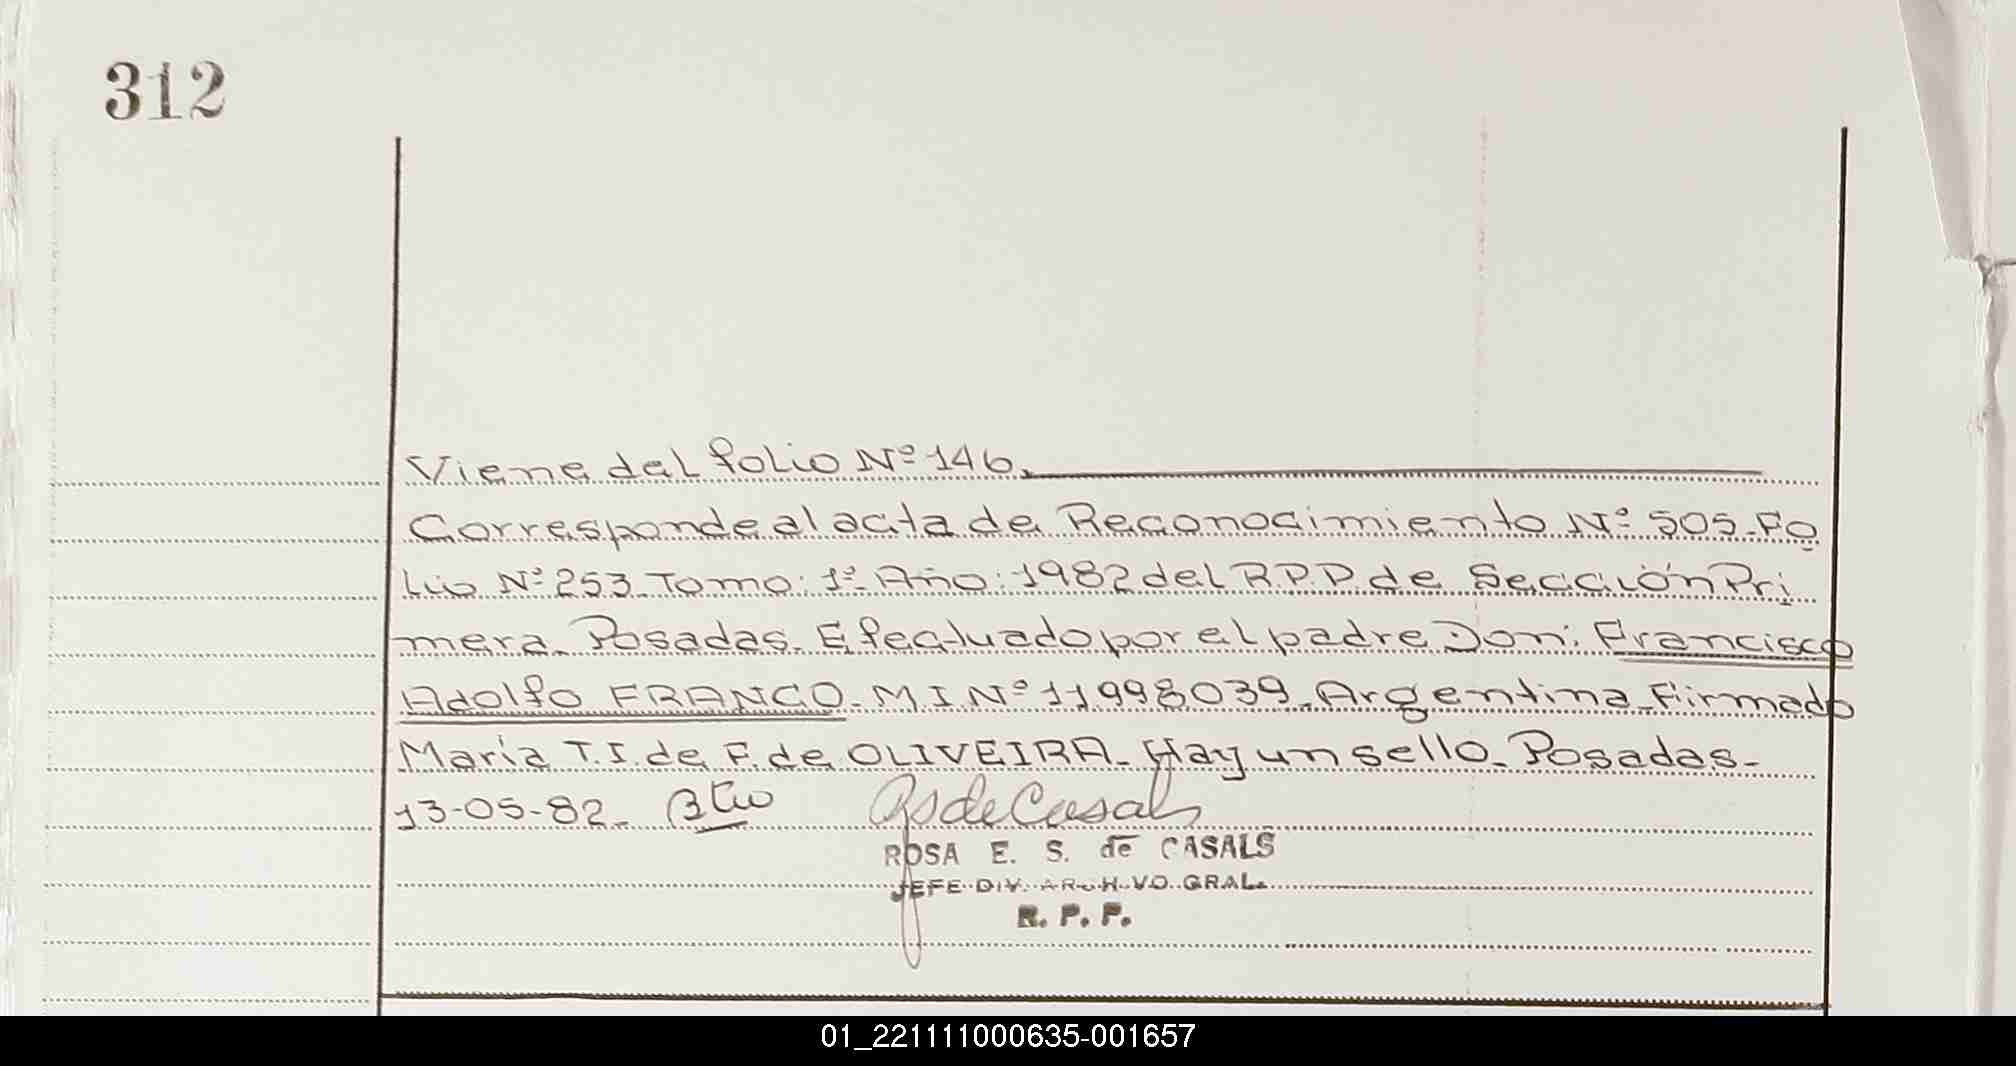 312
Viene del folio Nº 146.
Corresponde al acta de Reconocimiento Nº 505. Fo
lio Nº 253. Tomo: 1º. Año: 1982 del R.P.P. de Sección Pri
mera. Posadas. Efectuado por el padre Don: Francisco
Adolfo FRANCO. M.I. Nº 11998039. Argentina. Firmado
María T. I. de F. de OLIVEIRA. Hay un sello. Posadas.
13-05-82.
RSdeCasals
ROSA E. S. de CASALS
JEFE DIV. ARCHIVO GRAL.
R. P. P.
01_221111000635-001657